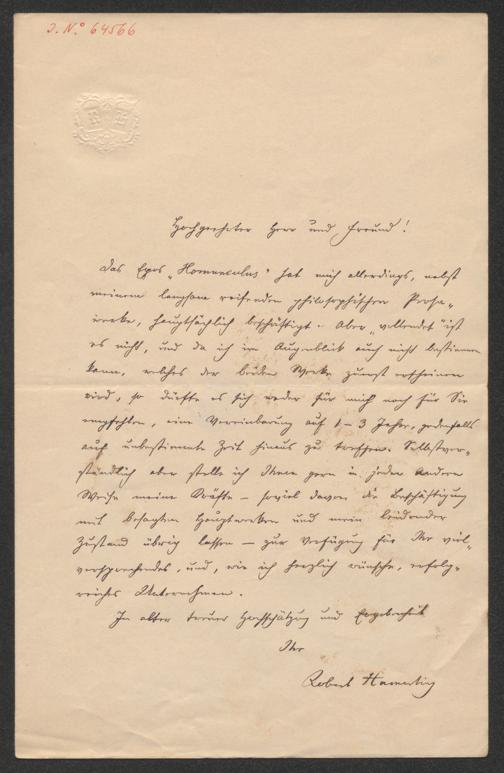 J. N.° 64566
Hochgeehrter Herr und Freund!
Das Epos „Homunculus" hat mich allerdings, nebst
meinem langsam reifenden philosophischen Prosa-
werke, hauptsächlich beschäftigt. Aber „vollendet" ist
es nicht, und da ich im Augenblick auch nicht bestimmen
kann, welches der beiden Werke zuerst erscheinen
wird, so dürfte es sich weder für mich noch für Sie
empfehlen, eine Vereinbarung auf 1–3 Jahre, jedenfalls
auf unbestimmte Zeit hinaus zu treffen. Selbstver-
ständlich aber stelle ich Ihnen gern in jeder andern
Weise meine Kräfte – soviel davon die Beschäftigung
mit besagten Hauptwerken und mein leidender
Zustand übrig lassen – zur Verfügung für Ihr viel-
versprechendes, und, wie ich herzlich wünsche, erfolg-
reiches Unternehmen.
In alter treuer Hochschätzung und Ergebenheit
Ihr
Robert Hamerling